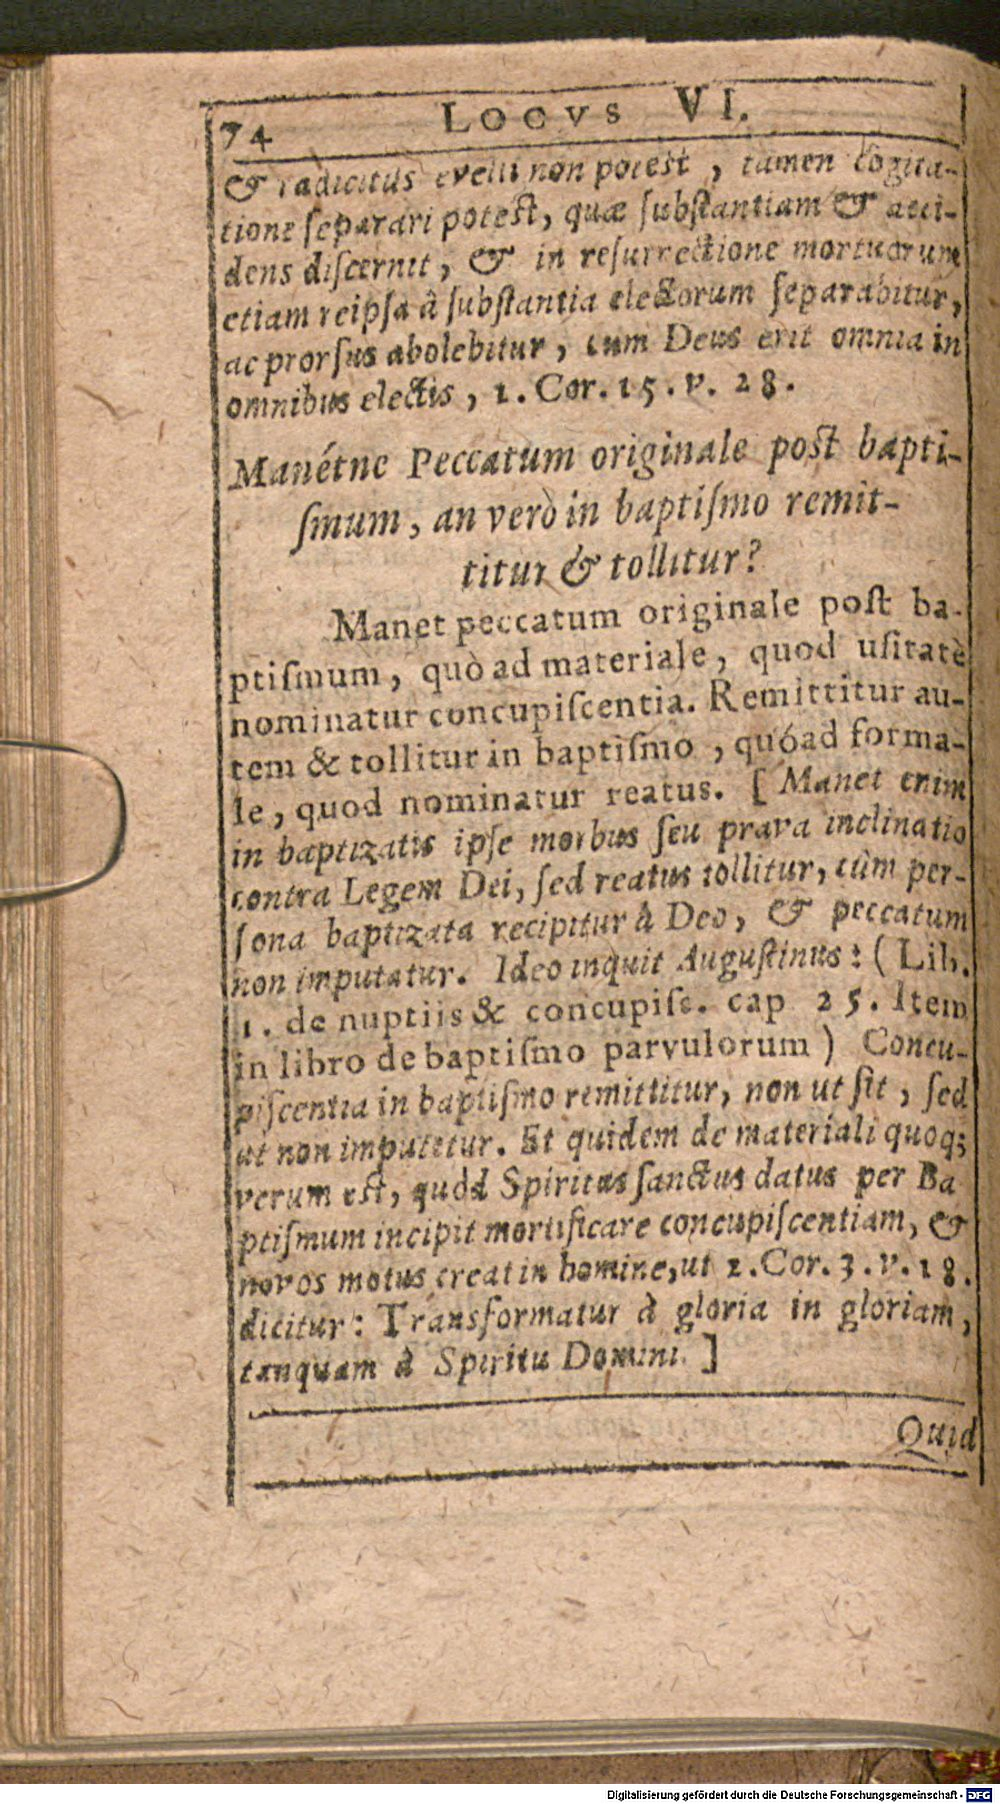 74 Locvs VI.
& radicitus evelli non potest, tamen cogita-
tione ſeparari potest, quæ ſubſtantiam & acci-
dens diſcernit, & in reſurrectione mortuorum
etiam reipſa â ſubſtantia electorum ſeparabitur,
ac prorſus abolebitur, cum Deus erit omnia in
omnibus electis, 1. Cor. 15. v. 28.
Manétne Peccatum originale post bapti-
ſmum, an verò in baptiſmo remit-
titur & tollitur?
Manet peccatum originale poſt ba-
ptiſmum, quò ad materiale, quod uſitatè
nominatur concupiſcentia. Remittitur au-
tem & tollitur in baptiſmo, quóad forma-
le, quod nominatur reatus. [ Manet enim
in baptizatis ipſe morbus ſeu prava inclinatio
contra Legem Dei, ſed reatus tollitur, cùm per-
ſona baptizata recipitur à Deo, & peccatum
non imputatur. Ideo inquit Auguſtinus: (Lib.
1. de nuptiis & concupiſc. cap 25. Item
in libro de baptiſmo parvulorum) Concu-
piſcentia in baptiſmo remittitur, non ut ſit, ſed
ut non imputetur. Et quidem de materiali quoq;
verum eſt, quòd Spiritus ſanctus datus per Ba
ptiſmum incipit mortificare concupiſcentiam, &
novos motus creat in homine, ut 2. Cor. 3. v. 18.
dicitur: Transformatur à gloria in gloriam,
tanquam à Spiritu Domini. ]
Quid
Digitalisierung gefördert durch die Deutsche Forschungsgemeinschaft - DFG